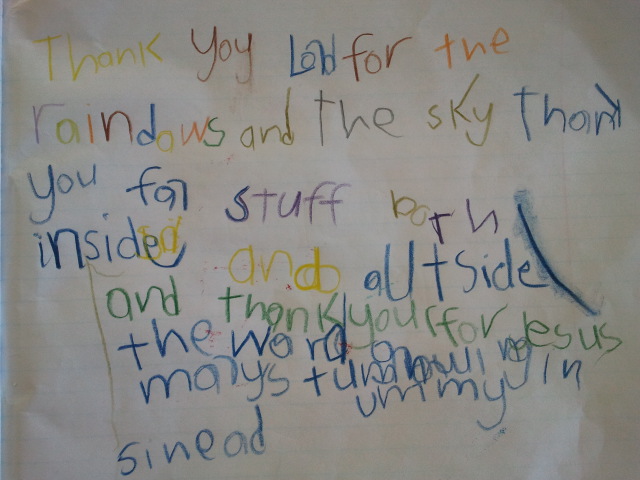 Thank yoy Lod for the
raindows and the sky thank
you for stuff both
inside and outside
and thank you for Jesus
the word growing in
marys tummy
sinead